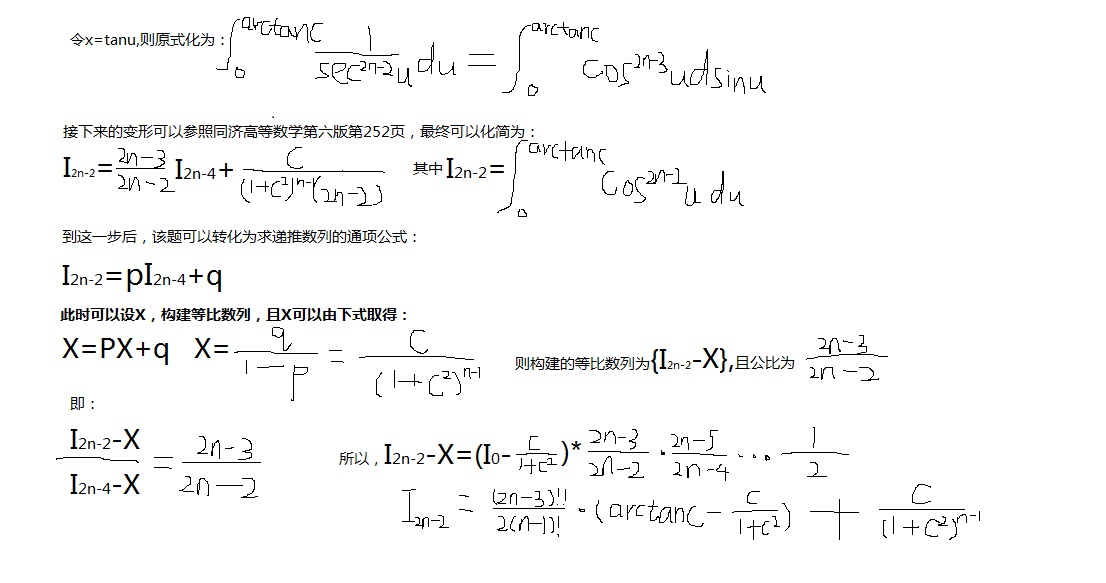 令x=tanu,则原式化为：∫₀^{arctanc} 1/(sec^{2n-2}u) du = ∫₀^{arctanc} cos^{2n-3}u dsinu
接下来的变形可以参照同济高等数学第六版第252页，最终可以化简为：
I_{2n-2} = (2n-3)/(2n-2) I_{2n-4} + C/((1+C²)^{n-1}(2n-2)) 其中 I_{2n-2} = ∫₀^{arctanc} cos^{2n-2}u du
到这一步后，该题可以转化为求递推数列的通项公式：
I_{2n-2}=pI_{2n-4}+q
此时可以设X，构建等比数列，且X可以由下式取得：
X=PX+q X= q/(1-p) = C/(1+C²)^{n-1} 则构建的等比数列为{I_{2n-2}-X},且公比为 (2n-3)/(2n-2)
即：
(I_{2n-2}-X)/(I_{2n-4}-X) = (2n-3)/(2n-2) 所以，I_{2n-2}-X=(I₀- C/(1+C²))* (2n-3)/(2n-2) · (2n-5)/(2n-4) ... 1/2
I_{2n-2} = (2n-3)!!/(2(n-1)!) · (arctanc - C/(1+C²)) + C/(1+C²)^{n-1}